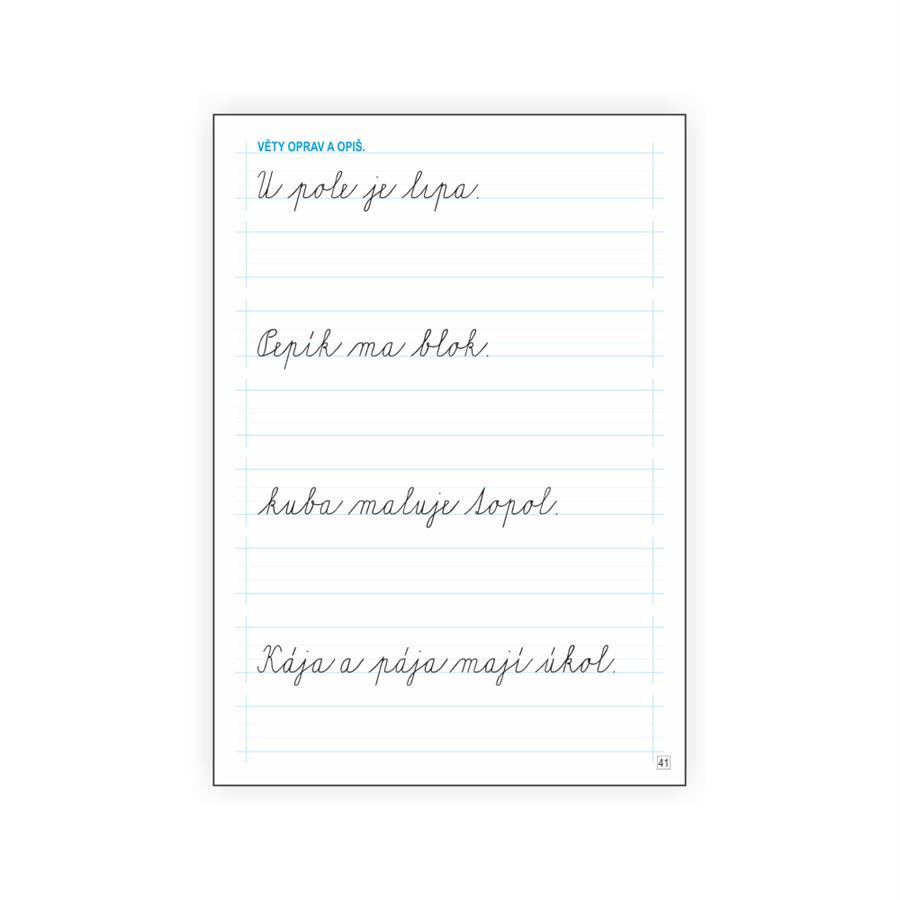 VĚTY OPRAV A OPIŠ.
U pole je lıpa.
Pepík ma blok.
kuba maluje topol.
Kája a pája mají úkol.
41